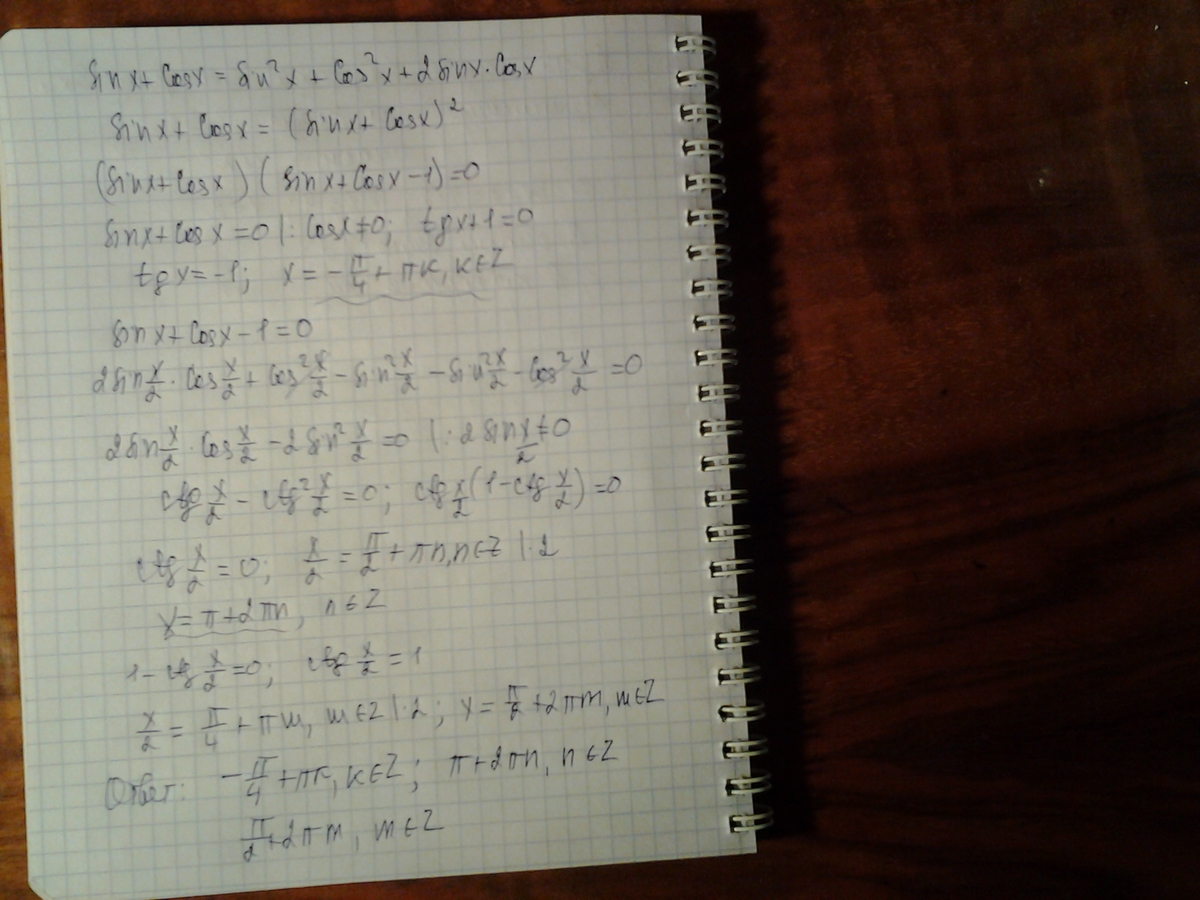 sinx + Cosx = sin²x + Cos²x + 2sinx·Cosx
sinx + Cosx = (sinx + Cosx)²
(sinx + Cosx)(sinx + Cosx - 1) = 0
sinx + Cosx = 0 |: Cosx ≠ 0; tgx + 1 = 0
tgx = -1; x = -π/4 + πk, k∈Z
sinx + Cosx - 1 = 0
2sin x/2 · Cos x/2 + Cos² x/2 - sin² x/2 - sin² x/2 - Cos² x/2 = 0
2sin x/2 · Cos x/2 - 2sin² x/2 = 0 |: 2sin x/2 ≠ 0
ctg x/2 - ctg² x/2 = 0; ctg x/2 (1 - ctg x/2) = 0
ctg x/2 = 0; x/2 = π/2 + πn, n∈Z |·2
x = π + 2πn, n∈Z
1 - ctg x/2 = 0; ctg x/2 = 1
x/2 = π/4 + πm, m∈Z |·2; x = π/2 + 2πm, m∈Z
Ответ: -π/4 + πk, k∈Z; π + 2πn, n∈Z
π/2 + 2πm, m∈Z